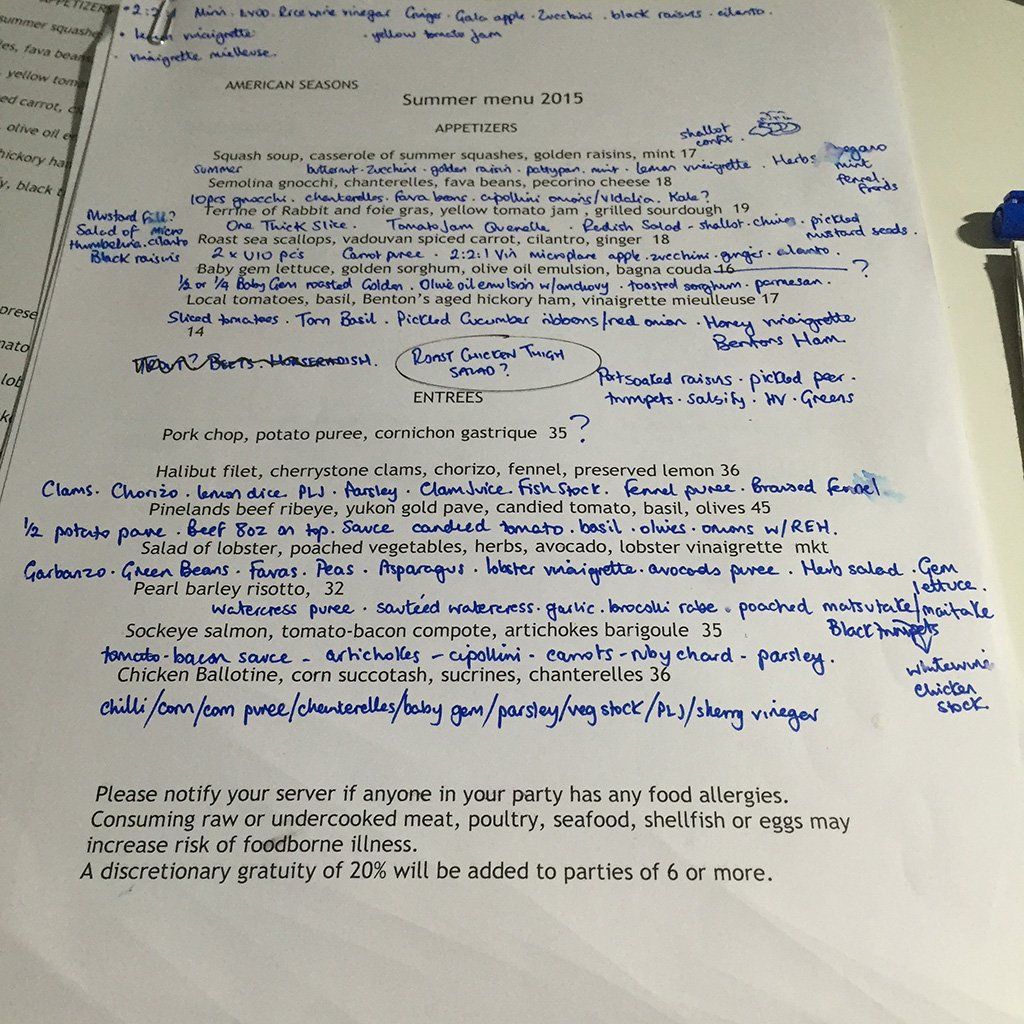 PETIZER
summer squashe
es, fava bean
yellow tom
ed carrot, c
olive oil e
hickory ha
y, black t
prese
nato
lob
• 2:2:1 Mirin. EVOO. Rice wine vinegar Ginger. Gala apple. Zucchini. black raisins. cilantro.
• lemon vinaigrette • yellow tomato jam
• vinaigrette mielleuse.
AMERICAN SEASONS
Summer menu 2015
APPETIZERS
shallot
confit.
Squash soup, casserole of summer squashes, golden raisins, mint 17
Summer butternut. zucchini. golden raisin. pattypan. mint. lemon vinaigrette. Herbs oregano
mint
fennel
fronds
Semolina gnocchi, chanterelles, fava beans, pecorino cheese 18
10pcs gnocchi. chanterelles. fava beans. cipollini onions/Vidalia. Kale?
Terrine of Rabbit and foie gras, yellow tomato jam , grilled sourdough 19
One Thick Slice. Tomato Jam Quenelle. Redish Salad - shallot. chives. pickled
mustard seeds.
Mustard frill?
Salad of micro
thumbelina. cilantro
Black raisins
Roast sea scallops, vadouvan spiced carrot, cilantro, ginger 18
2 x U10 pcs Carrot puree. 2:2:1 Vin microplane apple. zucchini. ginger. cilantro.
Baby gem lettuce, golden sorghum, olive oil emulsion, bagna couda 16 ?
½ or ¼ Baby Gem roasted Golden. Olive oil emulsion w/anchovy. toasted sorghum. parmesan.
Local tomatoes, basil, Benton's aged hickory ham, vinaigrette mieulleuse 17
Sliced tomatoes. Torn Basil. Pickled Cucumber ribbons/red onion. Honey vinaigrette
Bentons Ham
14
TROUT? BEETS. HORSERADISH.
ROAST CHICKEN THIGH
SALAD?
Port soaked raisins. pickled pear.
trumpets. salsify. HV. Greens
ENTREES
Pork chop, potato puree, cornichon gastrique 35 ?
Halibut filet, cherrystone clams, chorizo, fennel, preserved lemon 36
Clams. Chorizo. lemon dice. PLJ. Parsley. Clam Juice. Fish Stock. Fennel puree. Braised fennel
Pinelands beef ribeye, yukon gold pave, candied tomato, basil, olives 45
½ potato pave. Beef 8oz on top. Sauce candied tomato. basil. olives. onions w/REH.
Salad of lobster, poached vegetables, herbs, avocado, lobster vinaigrette mkt
Garbanzo. Green Beans. Favas. Peas. Asparagus. lobster vinaigrette. avocado puree. Herb salad. Gem
lettuce.
Pearl barley risotto, 32
watercress puree. sautéed watercress. garlic. brocolli rabe. poached matsutake/maitake
Black trumpets
whitewine
chicken
stock
Sockeye salmon, tomato-bacon compote, artichokes barigoule 35
tomato-bacon sauce - artichokes - cipollini - carrots - ruby chard - parsley.
Chicken Ballotine, corn succotash, sucrines, chanterelles 36
chilli/corn/corn puree/chanterelles/baby gem/parsley/veg stock/PLJ/sherry vinegar
Please notify your server if anyone in your party has any food allergies.
Consuming raw or undercooked meat, poultry, seafood, shellfish or eggs may
increase risk of foodborne illness.
A discretionary gratuity of 20% will be added to parties of 6 or more.